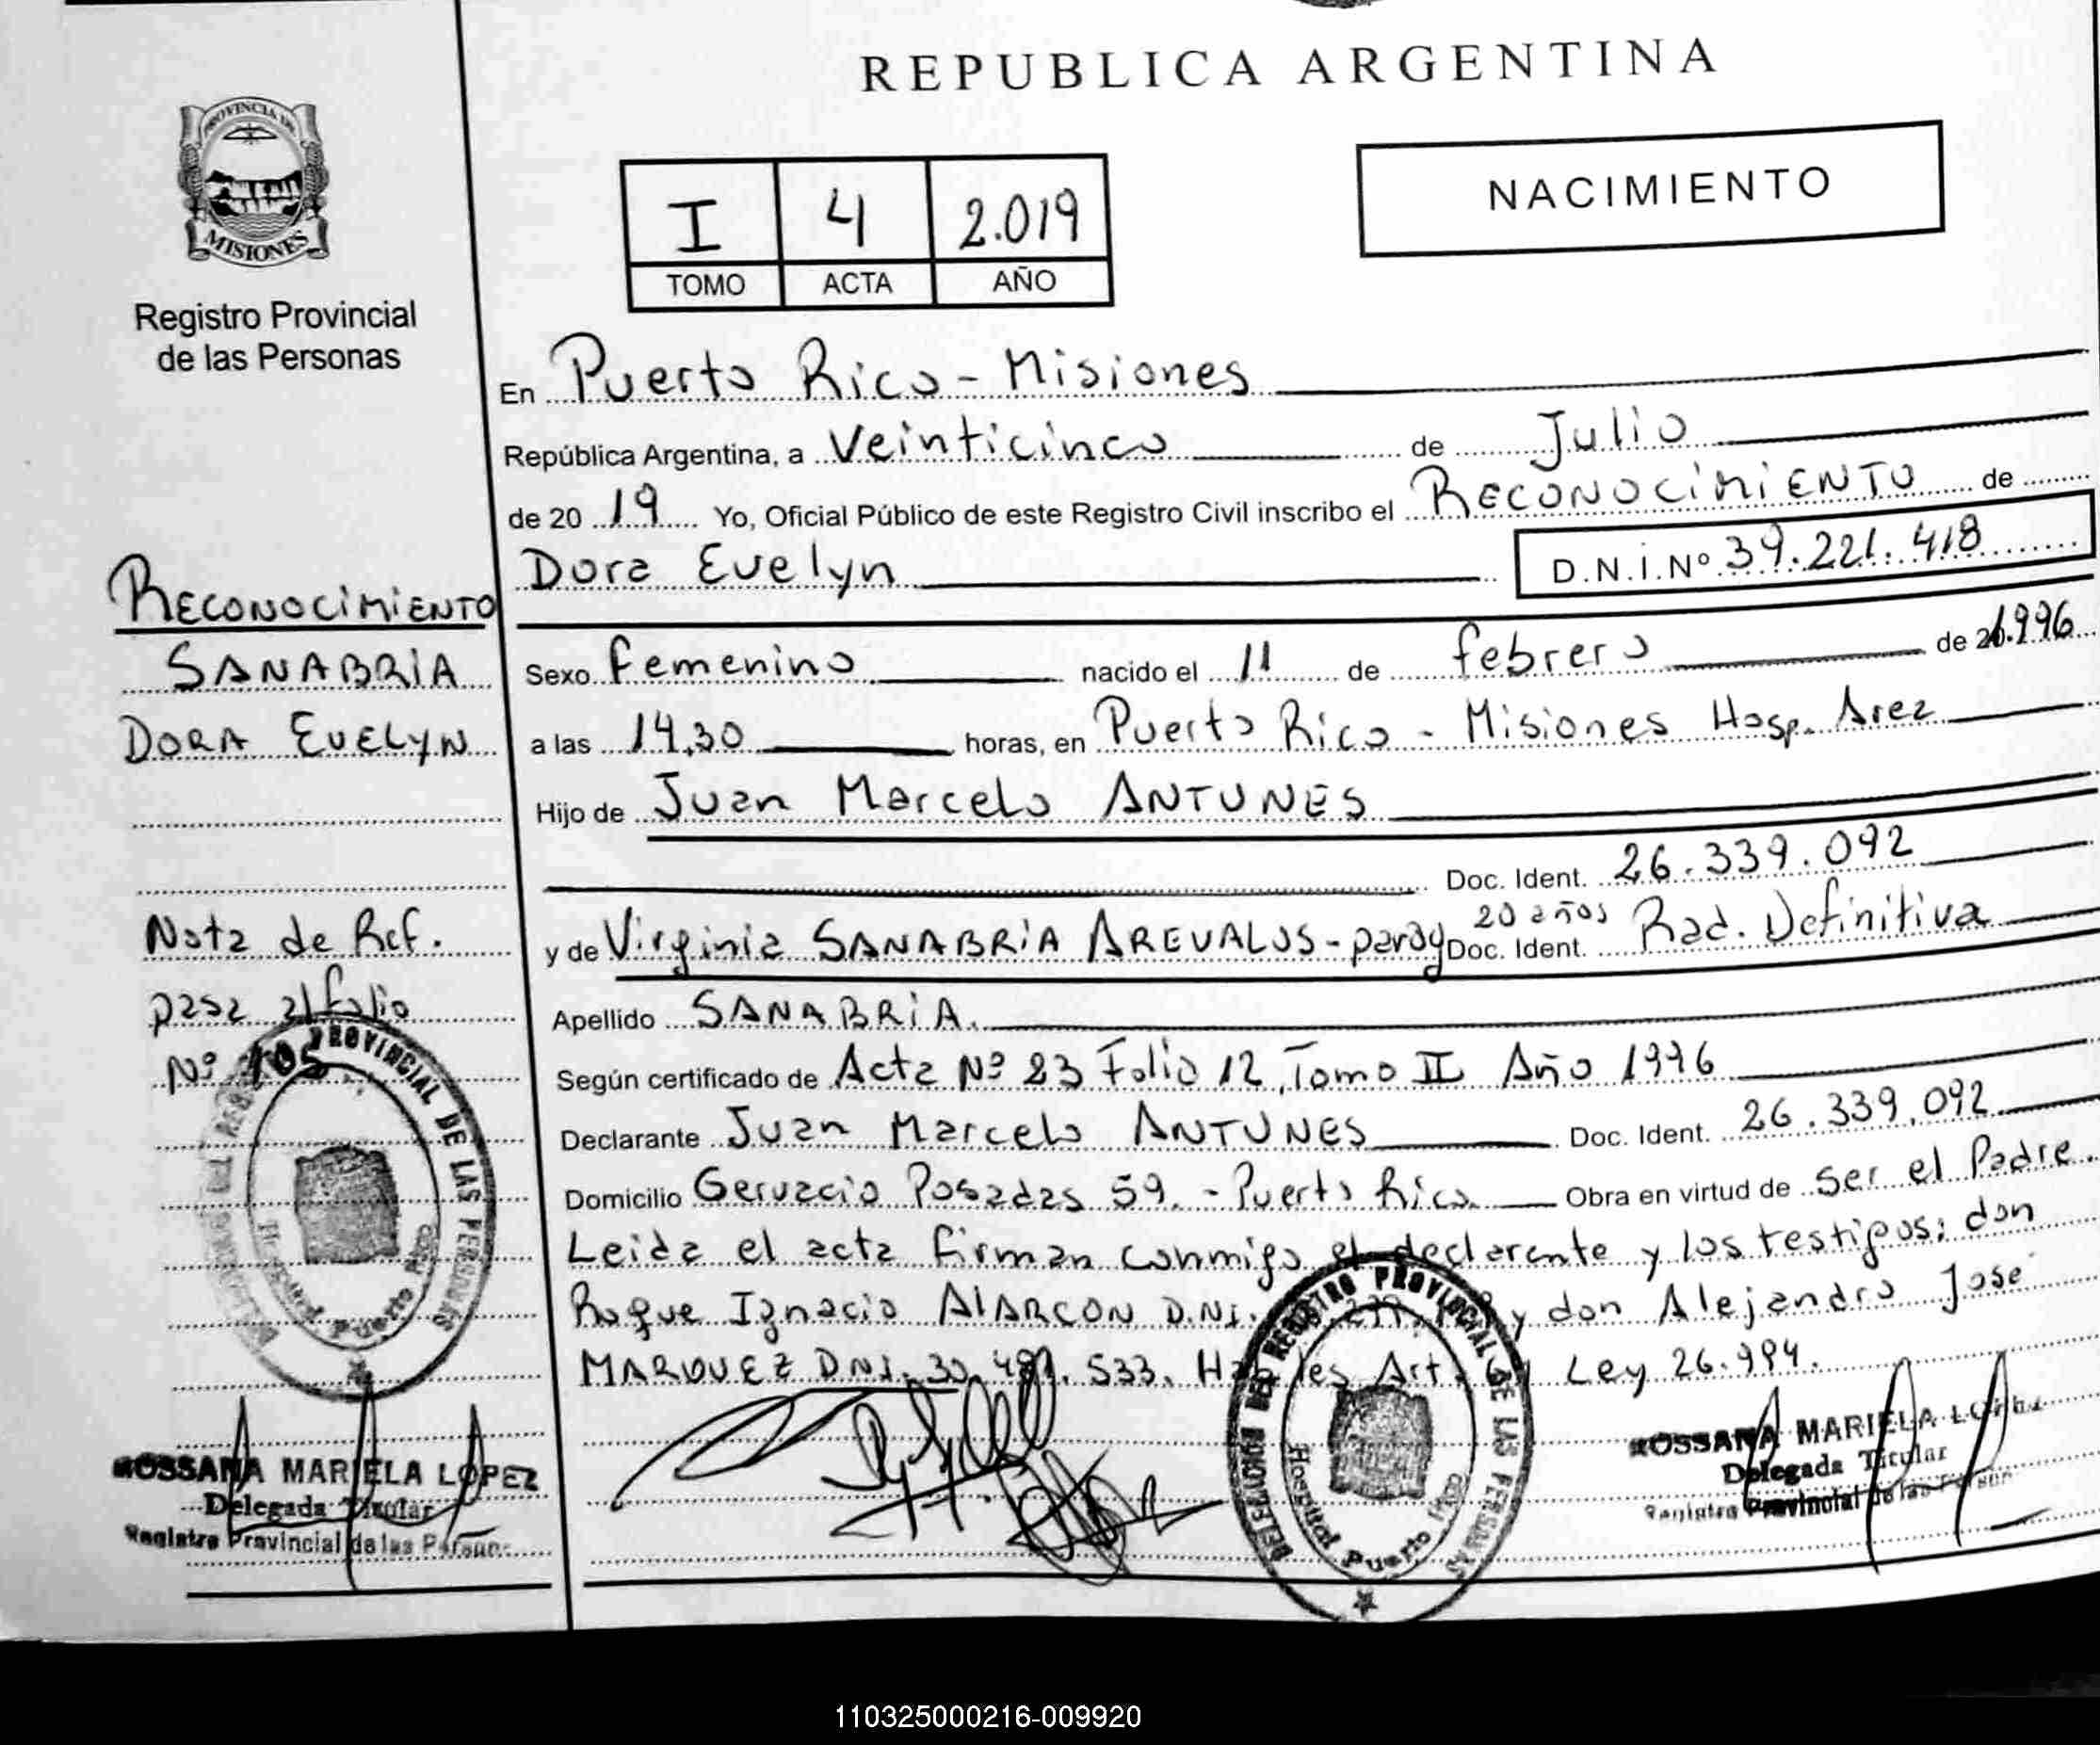 REPUBLICA ARGENTINA
PROVINCIA DE
MISIONES
Registro Provincial
de las Personas
NACIMIENTO
I 4 2.019
TOMO ACTA AÑO
En Puerto Rico - Misiones
República Argentina, a Veinticinco de Julio
de 2019 Yo, Oficial Público de este Registro Civil inscribo el RECONOCIMIENTO de
Dora Evelyn D.N.I.Nº 39.221.418
Sexo Femenino nacido el 11 de febrero de 1.996
a las 14,30 horas, en Puerto Rico - Misiones Hosp. Area
Hijo de Juan Marcelo ANTUNES
Doc. Ident. 26.339.092
y de Virginia SANABRIA AREVALOS - parag 20 años Doc. Ident. Rad. Definitiva
Apellido SANABRIA.
Según certificado de Acta Nº 23 Folio 12, Tomo II Año 1996
Declarante Juan Marcelo ANTUNES Doc. Ident. 26.339.092
Domicilio Gervacio Posadas 59. - Puerto Rico Obra en virtud de Ser el Padre.
Leida el acta firman conmigo el declarante y los testigos: don
Roque Ignacio ALARCON D.N.I. y don Alejandro Jose
MARQUEZ DNI. 533. Art. Ley 26.994.
RECONOCIMIENTO
SANABRIA
DORA EVELYN
Nota de Ref.
pasa al folio
Nº 105
PROVINCIAL DE LAS PERSONAS
Puerto Rico
ROSSANA MARIELA LOPEZ
Delegada Titular
Registro Provincial de las Person
DELEGACION DEL REGISTRO PROVINCIAL DE LAS PERSONAS
Hospital Puerto Rico
ROSSANA MARIELA LOPEZ
Delegada Titular
Registro Provincial de las Person
110325000216-009920